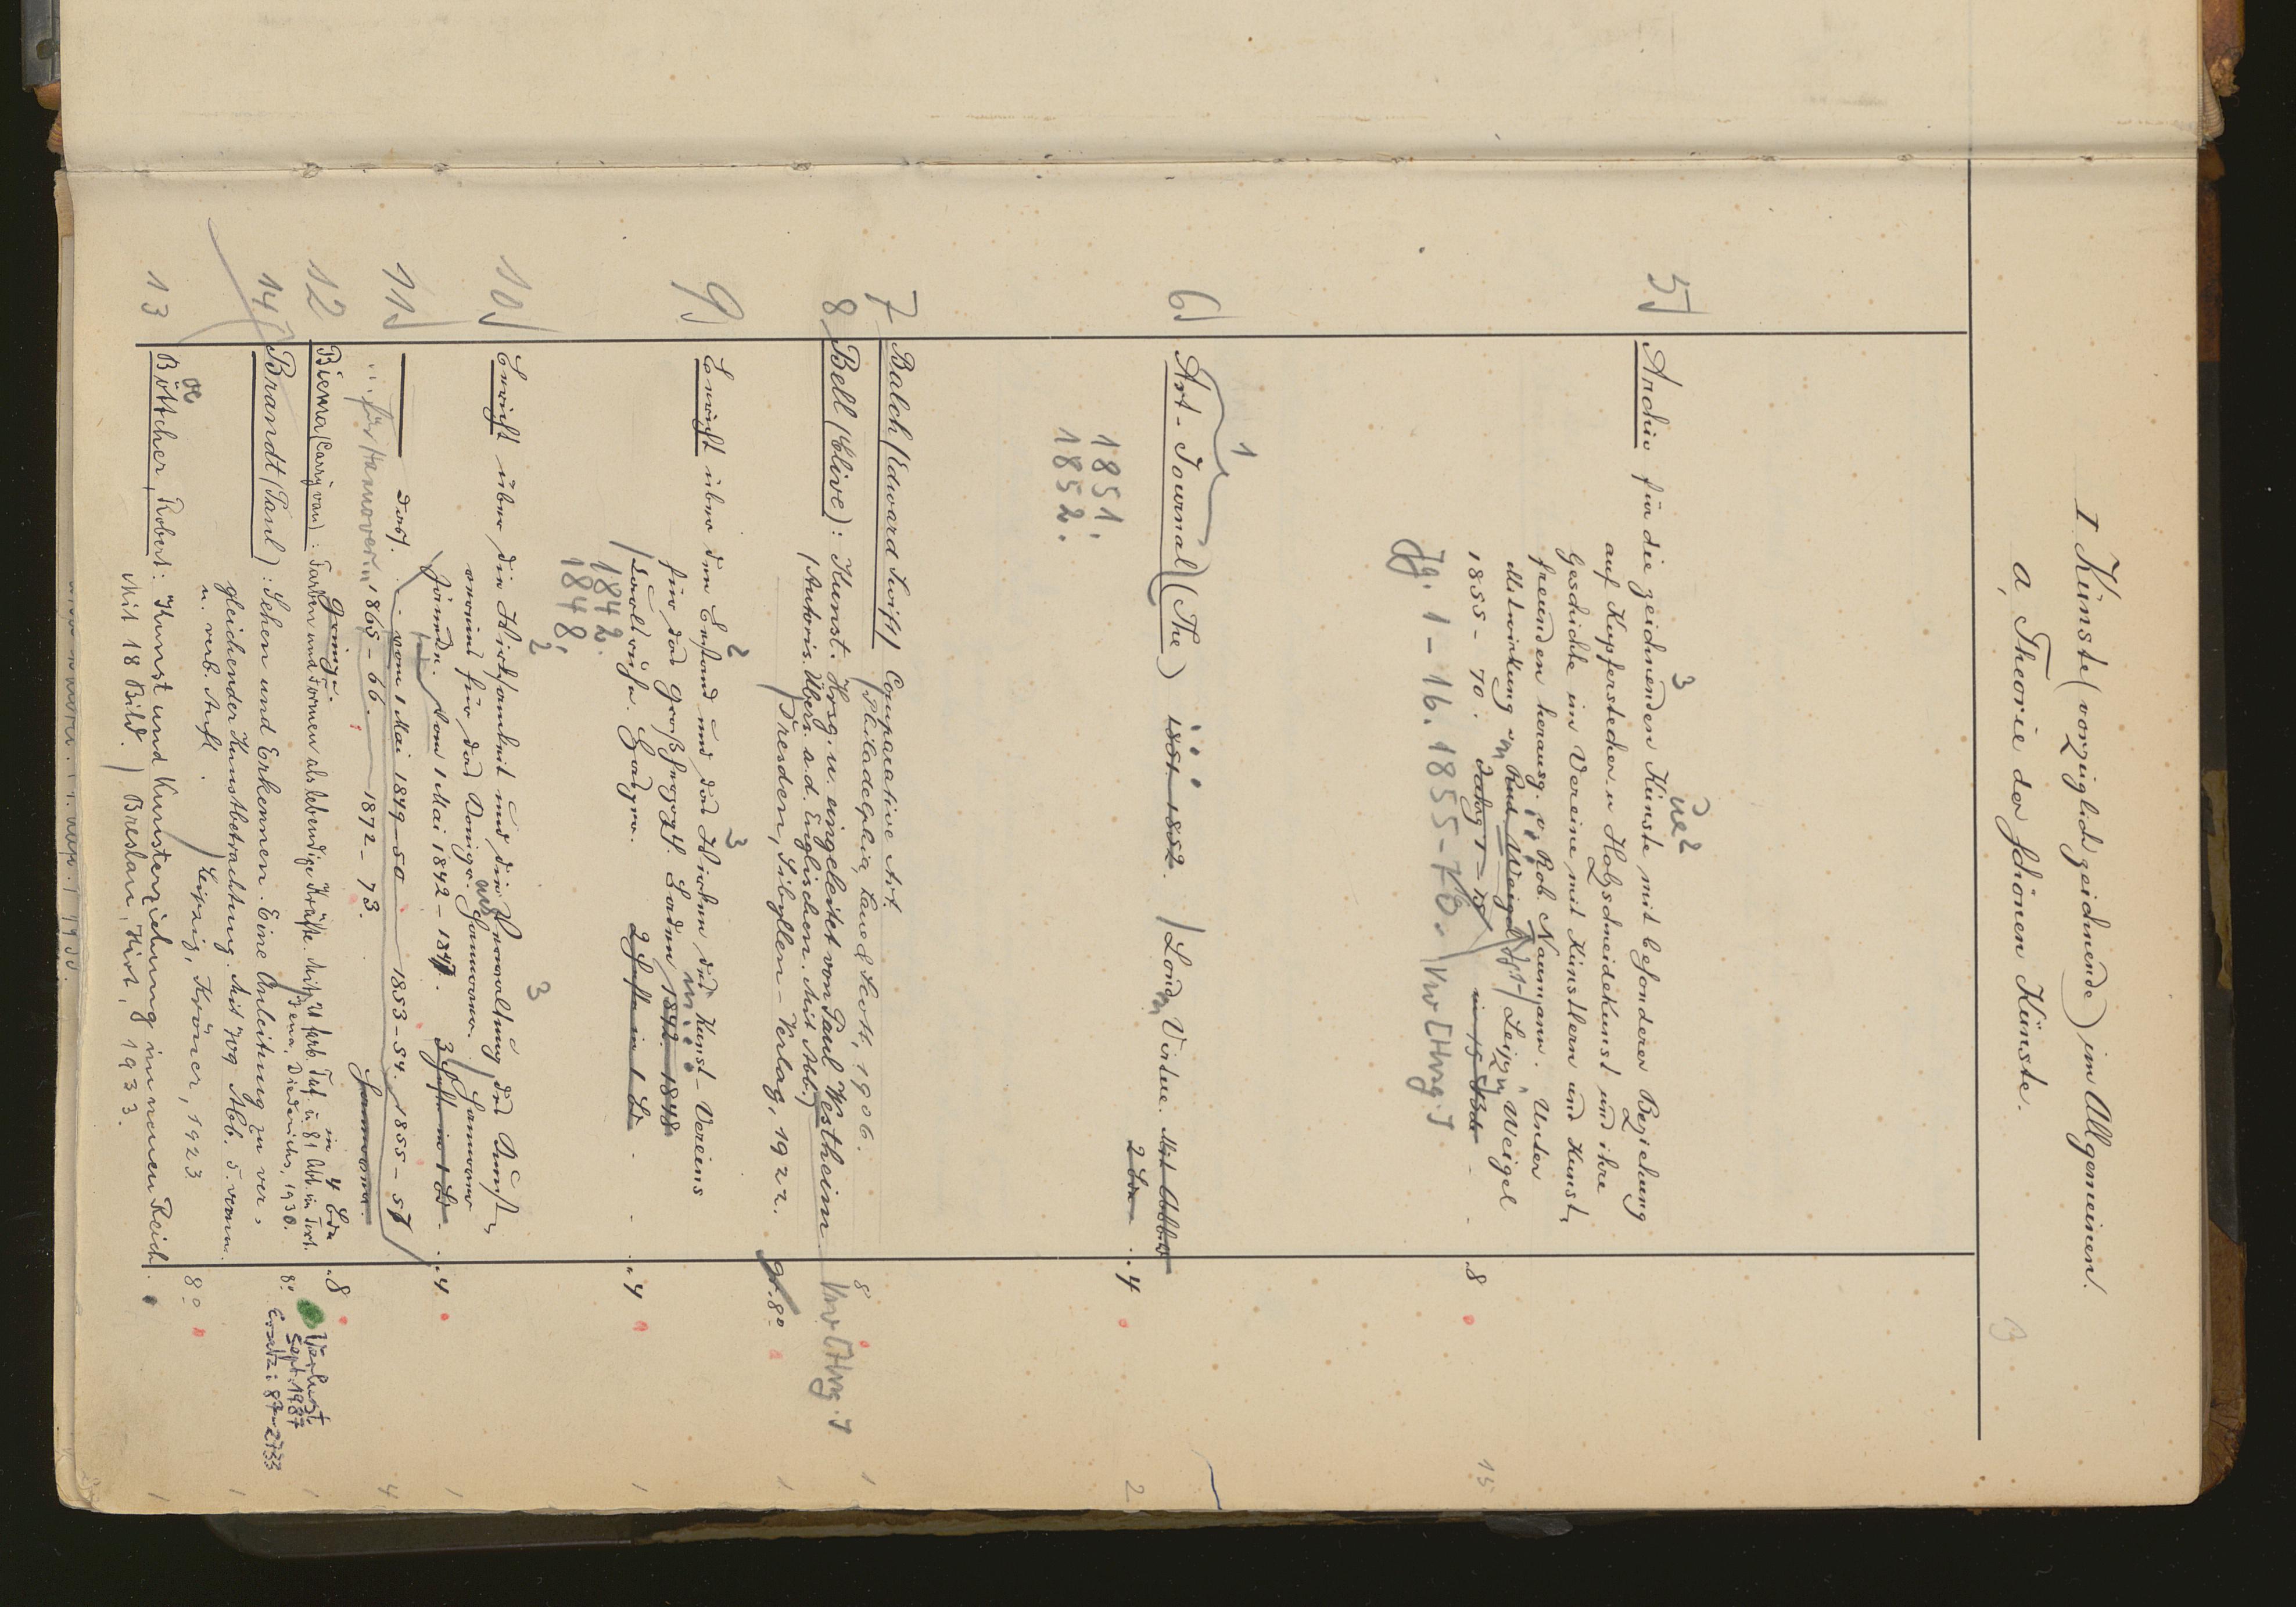 I. Künste (vorzüglich zeichnende) im Allgemeinen.
a, Theorie der schönen Künste.
3
5
Archiv für die zeichnenden Künste mit besonderer Beziehung
auf Kupferstecher- u Holzschneidekunst und ihre
Geschichte im Vereine mit Künstlern und Kunst-
freunden herausg. v. Rob. Naumann. Unter
Mitwirkung v. Rud. Weigel Leipzig, Weigel
1855-70. Jahrg 1-15 in 15 Bde . 8
Jg. 1-16. 1855-70.
15
6
Art-Journal (The) 1851-1852. Lond. Virtue. Mit Abb.
2 Bde . 4
1851.
1852.
2
7 Balch (Edward Swift) Comparative Art.
Philadelphia, Lane & Scott, 1906. 8
1
8 Bell (Clive): Kunst. Hrsg. u. eingeleitet von Paul Westheim.
(Autoris. Übers. a. d. Englischen. Mit Abb.)
Dresden, Sibyllen-Verlag, 1922. gr. 8°
1
9 Bericht über den Bestand und das Wirken des Kunst-Vereins
für das Großherzogt. Baden 1842-1848
Carlsruhe. Hasper. 2 Hefte in 1 Bd. . 4
1842.
1848.
1
10 Bericht über die Wirksamkeit und die Verwaltung des Kunst-
vereins für das Königr. Hannover. Hannover
Jänecke. Vom 1 Mai 1842-1847. 3 Hefte in 1 Bd. . 4
1
11 — dass. vom 1 Mai 1849-50 — 1853-54. 1855-57
... für Hannover 1865-66. — 1872-73. Hannover.
Grimpe. in 4 Bde . 8
4
12 Biema (Carry van): Farben und Formen als lebendige Kräfte. Mit 21 farb. Taf. u. 81 Abb. im Text.
Jena, Diederichs, 1930. 8°.
Verlust.
Sept. 1987
Ersatz: 87-2733
1
14 Brandt (Paul): Sehen und Erkennen. Eine Anleitung zu ver-
gleichender Kunstbetrachtung. Mit 709 Abb. 5. verm.
u. verb. Aufl. Leipzig, Kröner, 1923 8°
1
13 Böttcher, Robert: Kunst und Kunsterziehung im neuen Reich.
Mit 18 Bild. Breslau, Hirt, 1933.
1